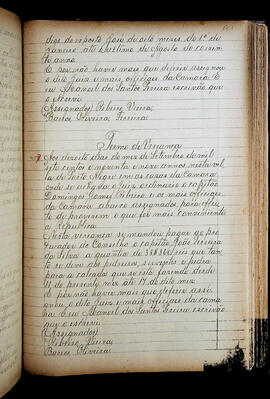 dias do posto João de oito mezes, de 1º de
Janeiro até o ultimo de Agosto do corren
te anno.
E por não haver mais que deferir assignou
o dito juiz e mais officiaes da Camara. E
eu Manoel dos Santos Ferreira escrivão que
o escrevi
(Assignados) Ribeiro, Vieira,
Barros, Oliveira, Ferreira.
Termo de Vereança
Aos dezoito dias do mez de Setembro de mil
sete centos e noventa e nove annos nesta vil
la de Porto Alegre em as casas da Camara
onde se achava o juiz ordinario o capitão
Domingos Gomes Ribeiro e os mais officiaes
da Camara abaixo assignados, para effei
to de proverem o que for mais conveniente
a Republica.
Nesta vereança se mandou pagar ao pro
curador do Conselho o capitão João Pereira
da Silva a quantia de reis que tan
to se deve aos pedreiros, serventes e pedra
para a calçada que se está fazendo desde
11 do presente mez até 17 do dito mez
E por não haver mais que deferir assi
gnou o dito juiz e mais officiaes da cama
ra. E eu Manoel dos Santos Ferreira escrivão
que o escrevi
(Assignados)
Ribeiro, Vieira,
Barros, Oliveira.